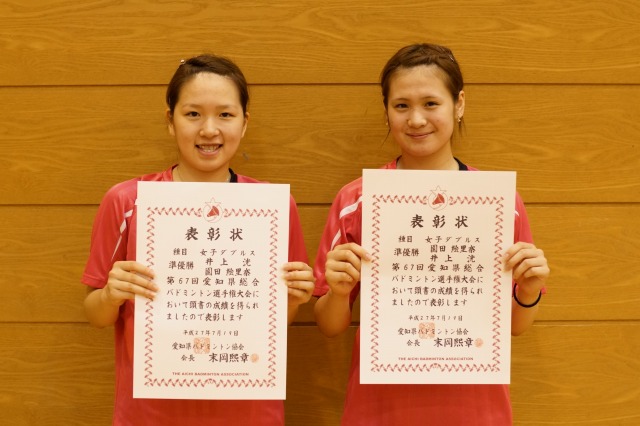 表彰状
種目 女子ダブルス
準優勝 井上 洸
園田 絵里奈
第67回愛知県総合
バドミントン選手権大会に
おいて頭書の成績を得られ
ましたので表彰します
平成27年7月19日
愛知県バドミントン協会
会長 末岡熙章
THE AICHI BADMINTON ASSOCIATION
表彰状
種目 女子ダブルス
準優勝 園田 絵里奈
井上 洸
第67回愛知県総合
バドミントン選手権大会に
おいて頭書の成績を得られ
ましたので表彰します
平成27年7月19日
愛知県バドミントン協会
会長 末岡熙章
THE AICHI BADMINTON ASSOCIATION